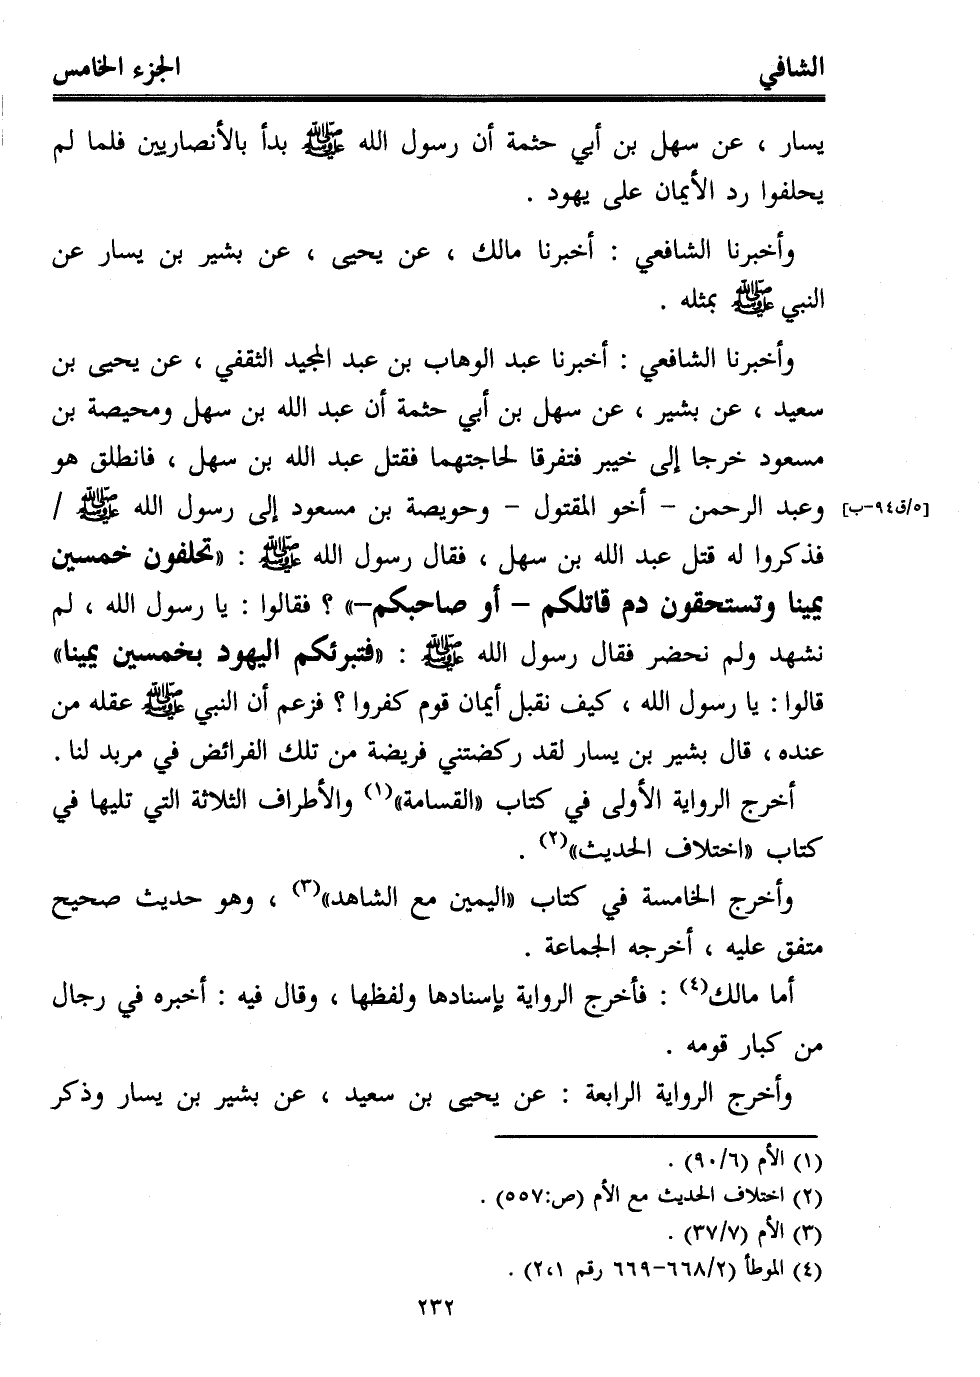 الشافي الجزء الخامس
يسار ، عن سهل بن أبي حثمة أن رسول الله ﷺ بدأ بالأنصاريين فلما لم
يحلفوا رد الأيمان على يهود .
وأخبرنا الشافعي : أخبرنا مالك ، عن يحيى ، عن بشير بن يسار عن
النبي ﷺ بمثله .
وأخبرنا الشافعي : أخبرنا عبد الوهاب بن عبد المجيد الثقفي ، عن يحيى بن
سعيد ، عن بشير ، عن سهل بن أبي حثمة أن عبد الله بن سهل ومحيصة بن
مسعود خرجا إلى خيبر فتفرقا لحاجتهما فقتل عبد الله بن سهل ، فانطلق هو
وعبد الرحمن - أخو المقتول - وحويصة بن مسعود إلى رسول الله ﷺ /
[٥/ق٩٤-ب]
فذكروا له قتل عبد الله بن سهل ، فقال رسول الله ﷺ : «تحلفون خمسين
يمينا وتستحقون دم قاتلكم - أو صاحبكم-» ؟ فقالوا : يا رسول الله ، لم
نشهد ولم نحضر فقال رسول الله ﷺ : «فتبرئكم اليهود بخمسين يمينا»
قالوا : يا رسول الله ، كيف نقبل أيمان قوم كفروا ؟ فزعم أن النبي ﷺ عقله من
عنده ، قال بشير بن يسار لقد ركضتني فريضة من تلك الفرائض في مربد لنا .
أخرج الرواية الأولى في كتاب «القسامة»(١) والأطراف الثلاثة التي تليها في
كتاب «اختلاف الحديث»(٢) .
وأخرج الخامسة في كتاب «اليمين مع الشاهد»(٣) ، وهو حديث صحيح
متفق عليه ، أخرجه الجماعة .
أما مالك(٤) : فأخرج الرواية بإسنادها ولفظها ، وقال فيه : أخبره في رجال
من كبار قومه .
وأخرج الرواية الرابعة : عن يحيى بن سعيد ، عن بشير بن يسار وذكر
(١) الأم (٩٠/٦) .
(٢) اختلاف الحديث مع الأم (ص:٥٥٧) .
(٣) الأم (٣٧/٧) .
(٤) الموطأ (٦٦٨/٢-٦٦٩ رقم ٢،١) .
٢٣٢